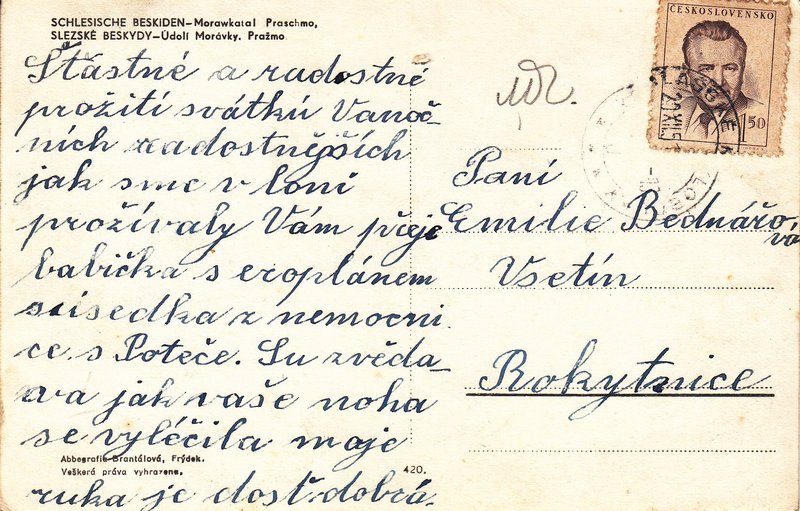 SCHLESISCHE BESKIDEN—Morawkatal Praschmo,
SLEZSKÉ BESKYDY—Údolí Morávky. Pražmo
Šťastné a radostné
prožití svátků Vanoč-
ních radostnějších
jak sme v loni
prožívaly Vám přeje
babička s eroplánem
susedka z nemocni
ce s Poteče. Su zvěda-
va jak vaše noha
se vyléčila moje
ruka je dosť dobrá.
Abbegrafia Brantálová, Frýdek.
Veškerá práva vyhrazena.
420.
ČESKOSLOVENSKO
50
Paní
Emilie Bednářo
vá
Vsetín
Rokytnice